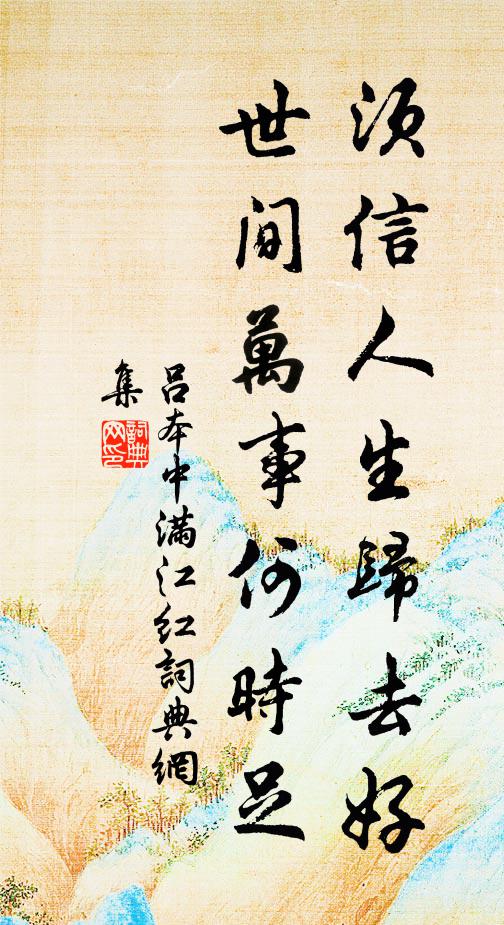 須信人生歸去好
世間萬事何時足
吕本中滿江紅詞典網
集
詞典
网印